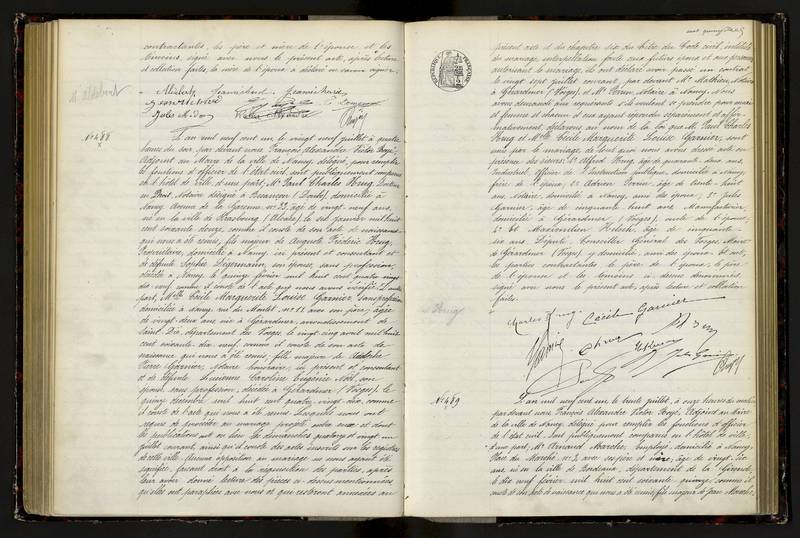 contractantes, les père et mère de l'épouse et les
témoins, signé avec nous le présent acte, après lecture
et collation faites, la mère de l'époux a déclaré ne savoir signer.
Jeanrichard Jeanrichard
N° 488
L'an mil neuf cent un le vingt neuf juillet à quatre
heures du soir, par devant nous François Alexandre Victor Boyé,
Adjoint au Maire de la ville de Nancy, délégué, pour remplir
les fonctions d'officier de l'état civil, sont publiquement comparus
en l'hôtel de ville, d'une part, Mr. Paul Charles Krug, Docteur
en Droit, Notaire désigné à Besançon (Doubs), domicilié à
Nancy, Avenue de la Garenne, no. 33, âgé de vingt neuf ans,
né en la ville de Strasbourg (Alsace), le six janvier mil huit
cent soixante douze, comme il conste de son acte de naissance
qui nous a été remis, fils majeur de Auguste Frédéric Krug,
Propriétaire, domicilié à Nancy, ici présent et consentant et
de défunte Sophie, son épouse, sans profession,
décédée à Nancy, le quinze février mil huit cent quatre vingt
dix neuf, comme il conste de l'acte que nous avons vérifié. D'autre
part, Melle. Cécile Marguerite Louise Garnier, sans profession
domiciliée à Nancy, rue du Montet, no. 11, avec son père, âgée
de vingt deux ans, née à Gérardmer, arrondissement de
Saint Dié, département des Vosges, le vingt cinq avril mil huit
cent soixante dix neuf, comme il conste de son acte de
naissance qui nous a été remis, fille majeure de Adolphe
Pierre Garnier, Notaire honoraire, ici présent et consentant
et de défunte Caroline Eugénie, son
épouse, sans profession, décédée à Gérardmer (Vosges), le
quinze décembre mil huit cent quatre vingt dix, comme
il conste de l'acte qui nous a été remis. Lesquels nous ont
requis de procéder au mariage projeté entre eux et dont
les publications ont eu lieu les dimanches quatorze et vingt un
juillet courant, ainsi qu'il conste des actes inscrits sur les registres
de cette ville. Aucune opposition au mariage ne nous ayant été
signifiée, faisant droit à la réquisition des parties, après
leur avoir donné lecture des pièces ci-dessus mentionnées
qu'elles ont paraphées avec nous et qui resteront annexées au
présent acte et du chapitre six du titre du Code civil, intitulé
du mariage, interpellation faite aux futurs époux et aux personnes
autorisant le mariage, ils ont déclaré avoir passé un contrat
le vingt sept juillet courant, par devant Me. Mathieu, Notaire
à Gérardmer (Vosges), et Me. Perrin, Notaire à Nancy. Nous
avons demandé aux requérants s'ils voulaient se prendre pour mari
et femme et chacun d'eux ayant répondu séparément et affir-
mativement, déclarons au nom de la loi que Mr. Paul Charles
Krug et Melle. Cécile Marguerite Louise Garnier, sont
unis par le mariage, de tout quoi nous avons dressé acte en
présence des sieurs: 1° Alfred Krug, âgé de quarante deux ans,
Industriel, officier de l'instruction publique, domicilié à Nancy,
frère de l'époux, 2° Adrien Perrin, âgé de trente huit
ans, Notaire, domicilié à Nancy, ami des époux, 3° Jules
Garnier, âgé de cinquante huit ans, Manufacturier,
domicilié à Gérardmer (Vosges), oncle de l'épouse,
4° et Maximilien Kelsch, âgé de cinquante
six ans, Député, Conseiller Général des Vosges, Maire
de Gérardmer (Vosges) y domicilié, ami des époux. Et ont,
les parties contractantes, le père de l'époux, le père
de l'épouse et les témoins ci-dessus dénommés,
signé avec nous le présent acte, après lecture et collation
faites.
Krug
Charles Krug Cécile Garnier
Jules Garnier
N° 489
L'an mil neuf cent un, le trente juillet, à onze heures du matin
par devant nous, François Alexandre Victor Boyé, Adjoint au Maire
de la ville de Nancy, délégué pour remplir les fonctions d'officier
de l'état civil, sont publiquement comparus en l'hôtel de ville,
d'une part, Mr. Armand, employé, domicilié à Nancy,
Place du Marché, no. 3, avec ses père et mère, âgé de vingt six
ans, né en la ville de Bordeaux, département de la Gironde,
le dix neuf février, mil huit cent soixante quinze, comme il
conste de son acte de naissance qui nous a été remis, fils majeur de Jean